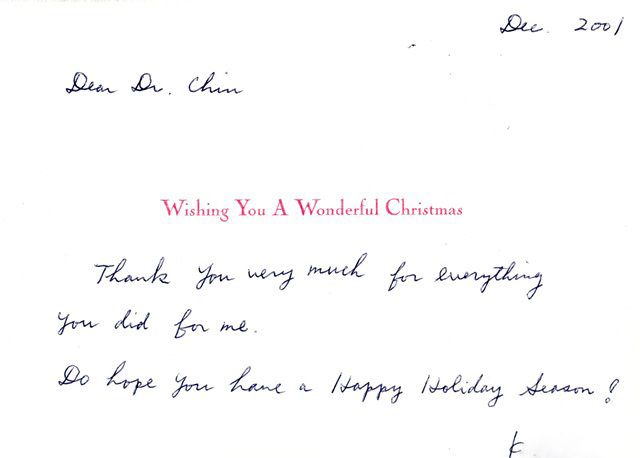 Dec. 2001
Dear Dr. Chin
Wishing You A Wonderful Christmas
Thank you very much for everything
you did for me.
Do hope you have a Happy Holiday Season!
K